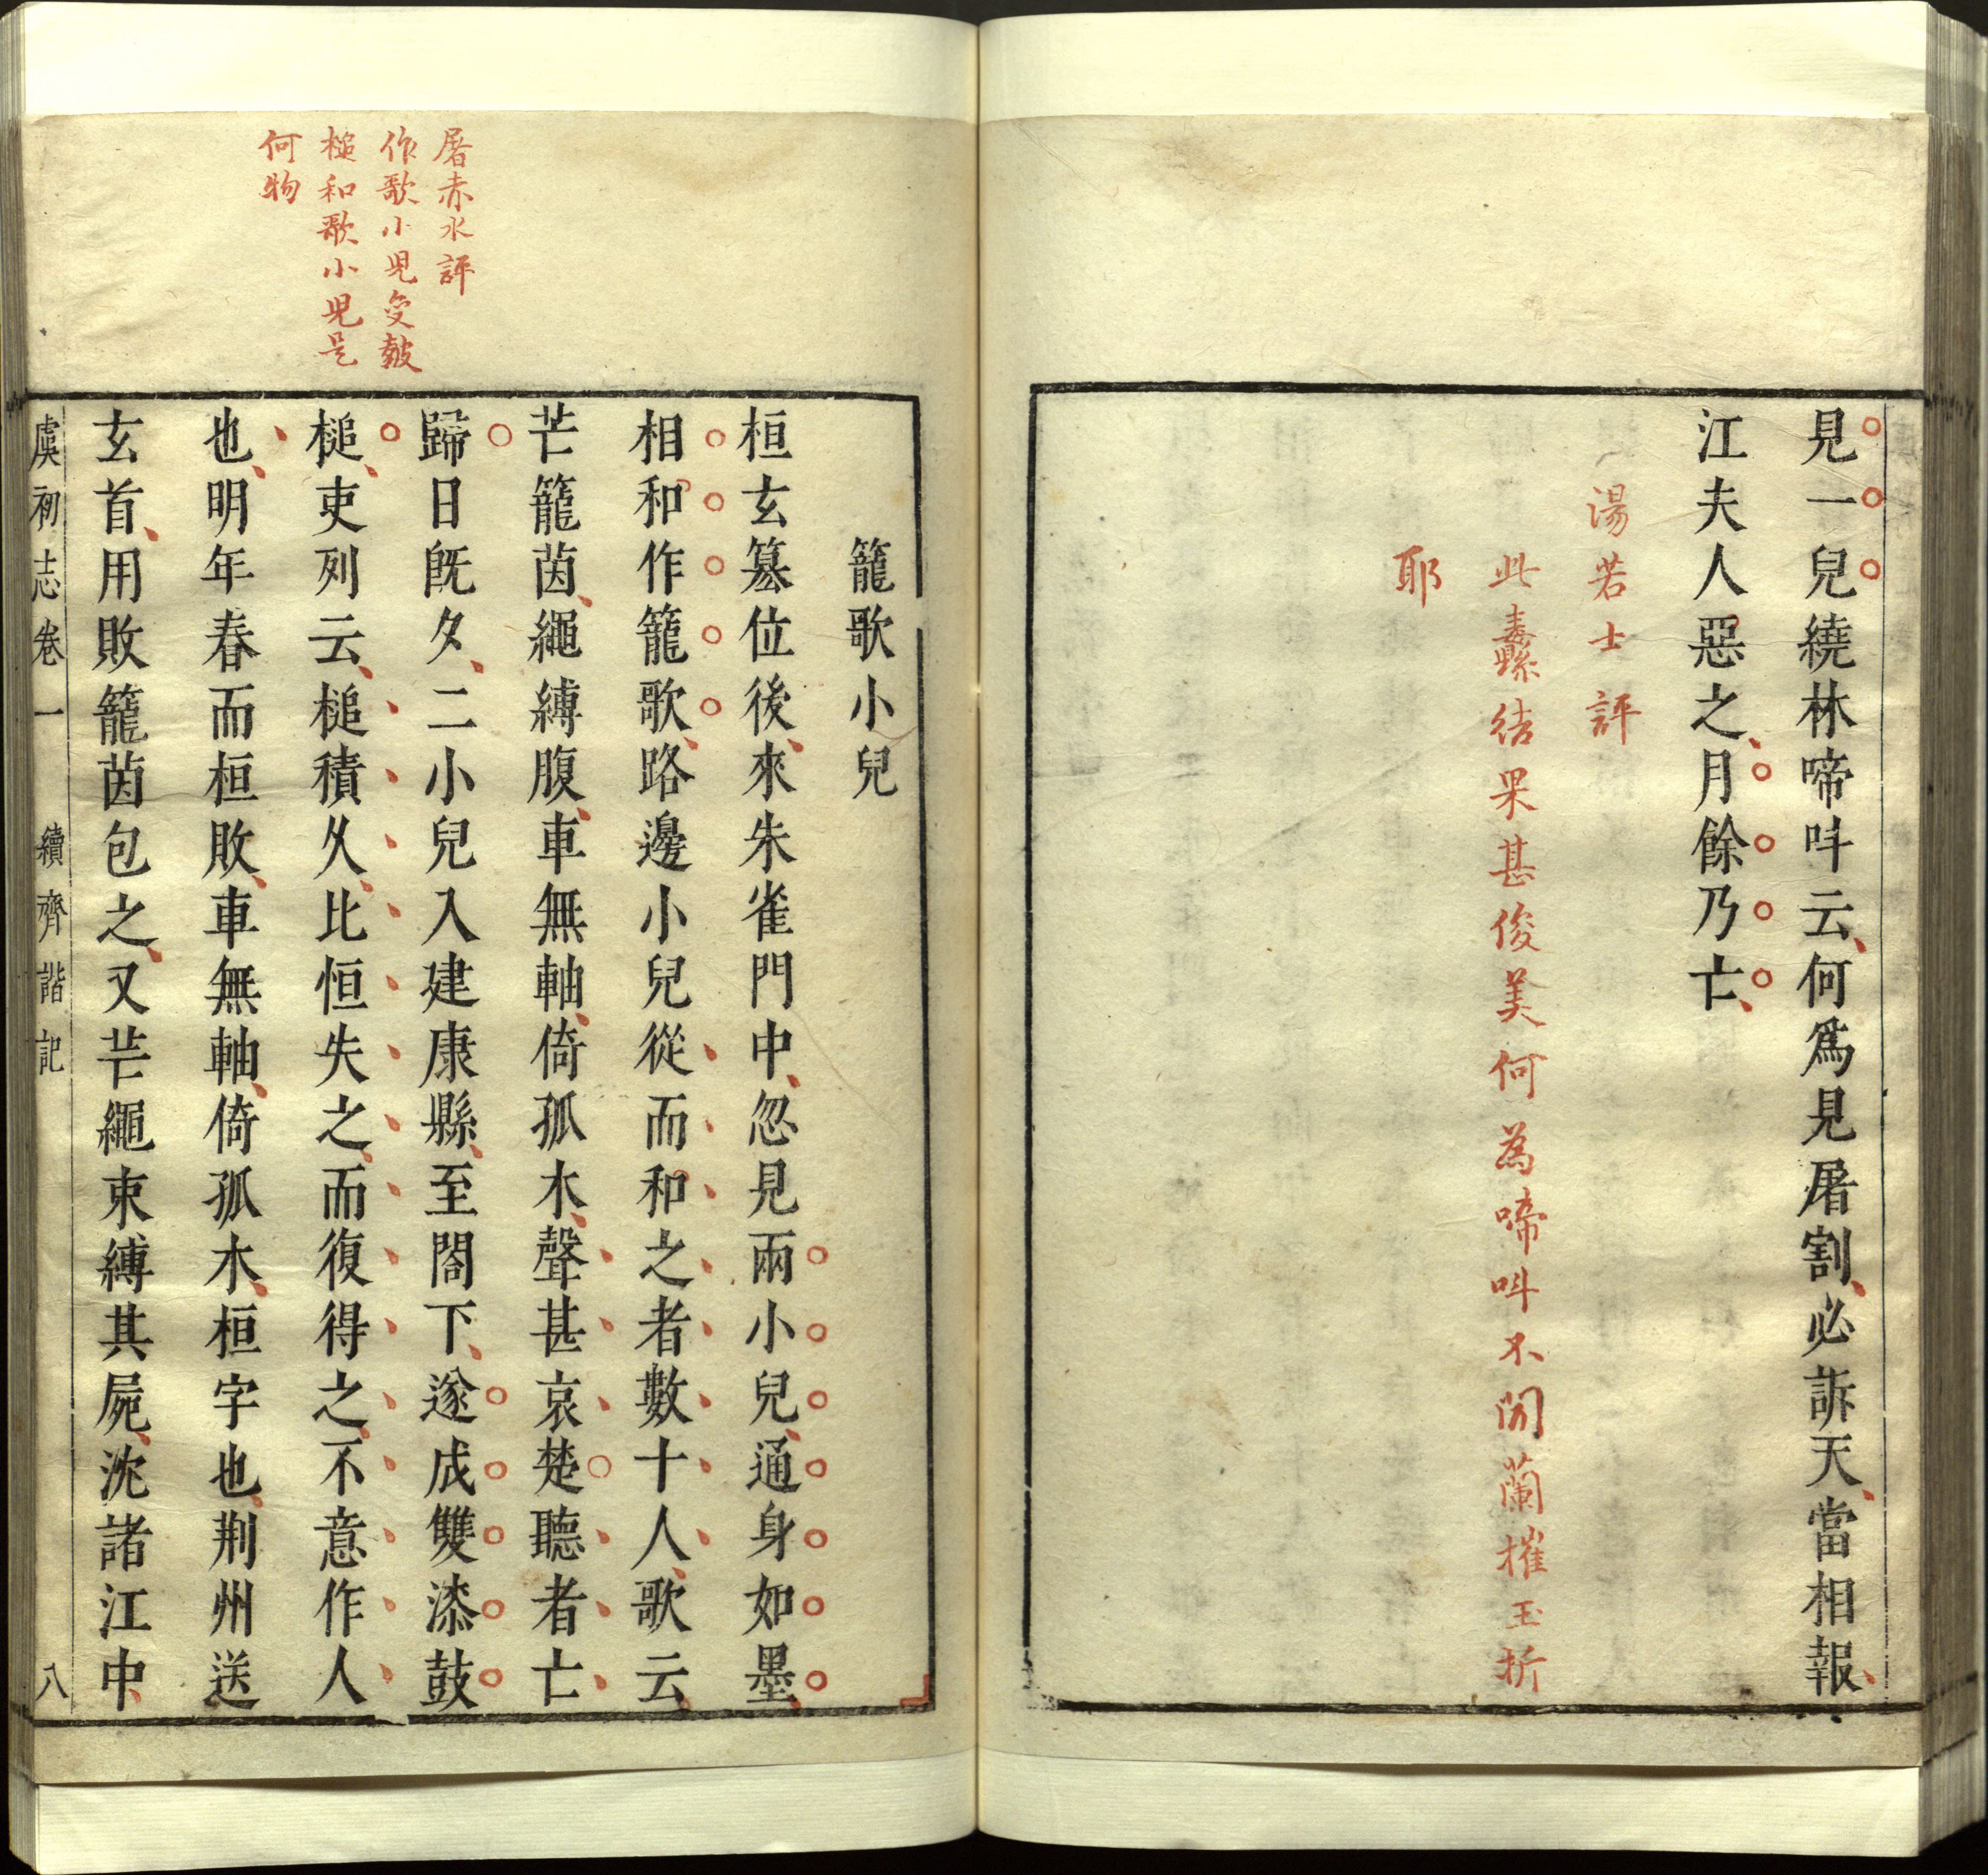 見一兒繞林啼呌云何爲見屠割必訴天當相報
江夫人惡之月餘乃亡
湯若士評
此纛緜結果甚俊美何為啼呌不閒蘭摧玉折
耶
屠赤水評
作歌小兒变皷
槌和歌小兒是
何物
籠歌小兒
桓玄篡位後來朱雀門中忽見兩小兒通身如墨
相和作籠歌路邊小兒從而和之者數十人歌云
芒籠茵繩縛腹車無軸倚孤木聲甚哀楚聽者亡
歸日旣夕二小兒入建康縣至閤下遂成雙漆鼓
槌吏列云槌積久比恒失之而復得之不意作人
也明年春而桓敗車無軸倚孤木桓字也荆州送
玄首用敗籠茵包之又芒繩束縛其屍沈諸江中
虞初志卷一 續齊諧記 八